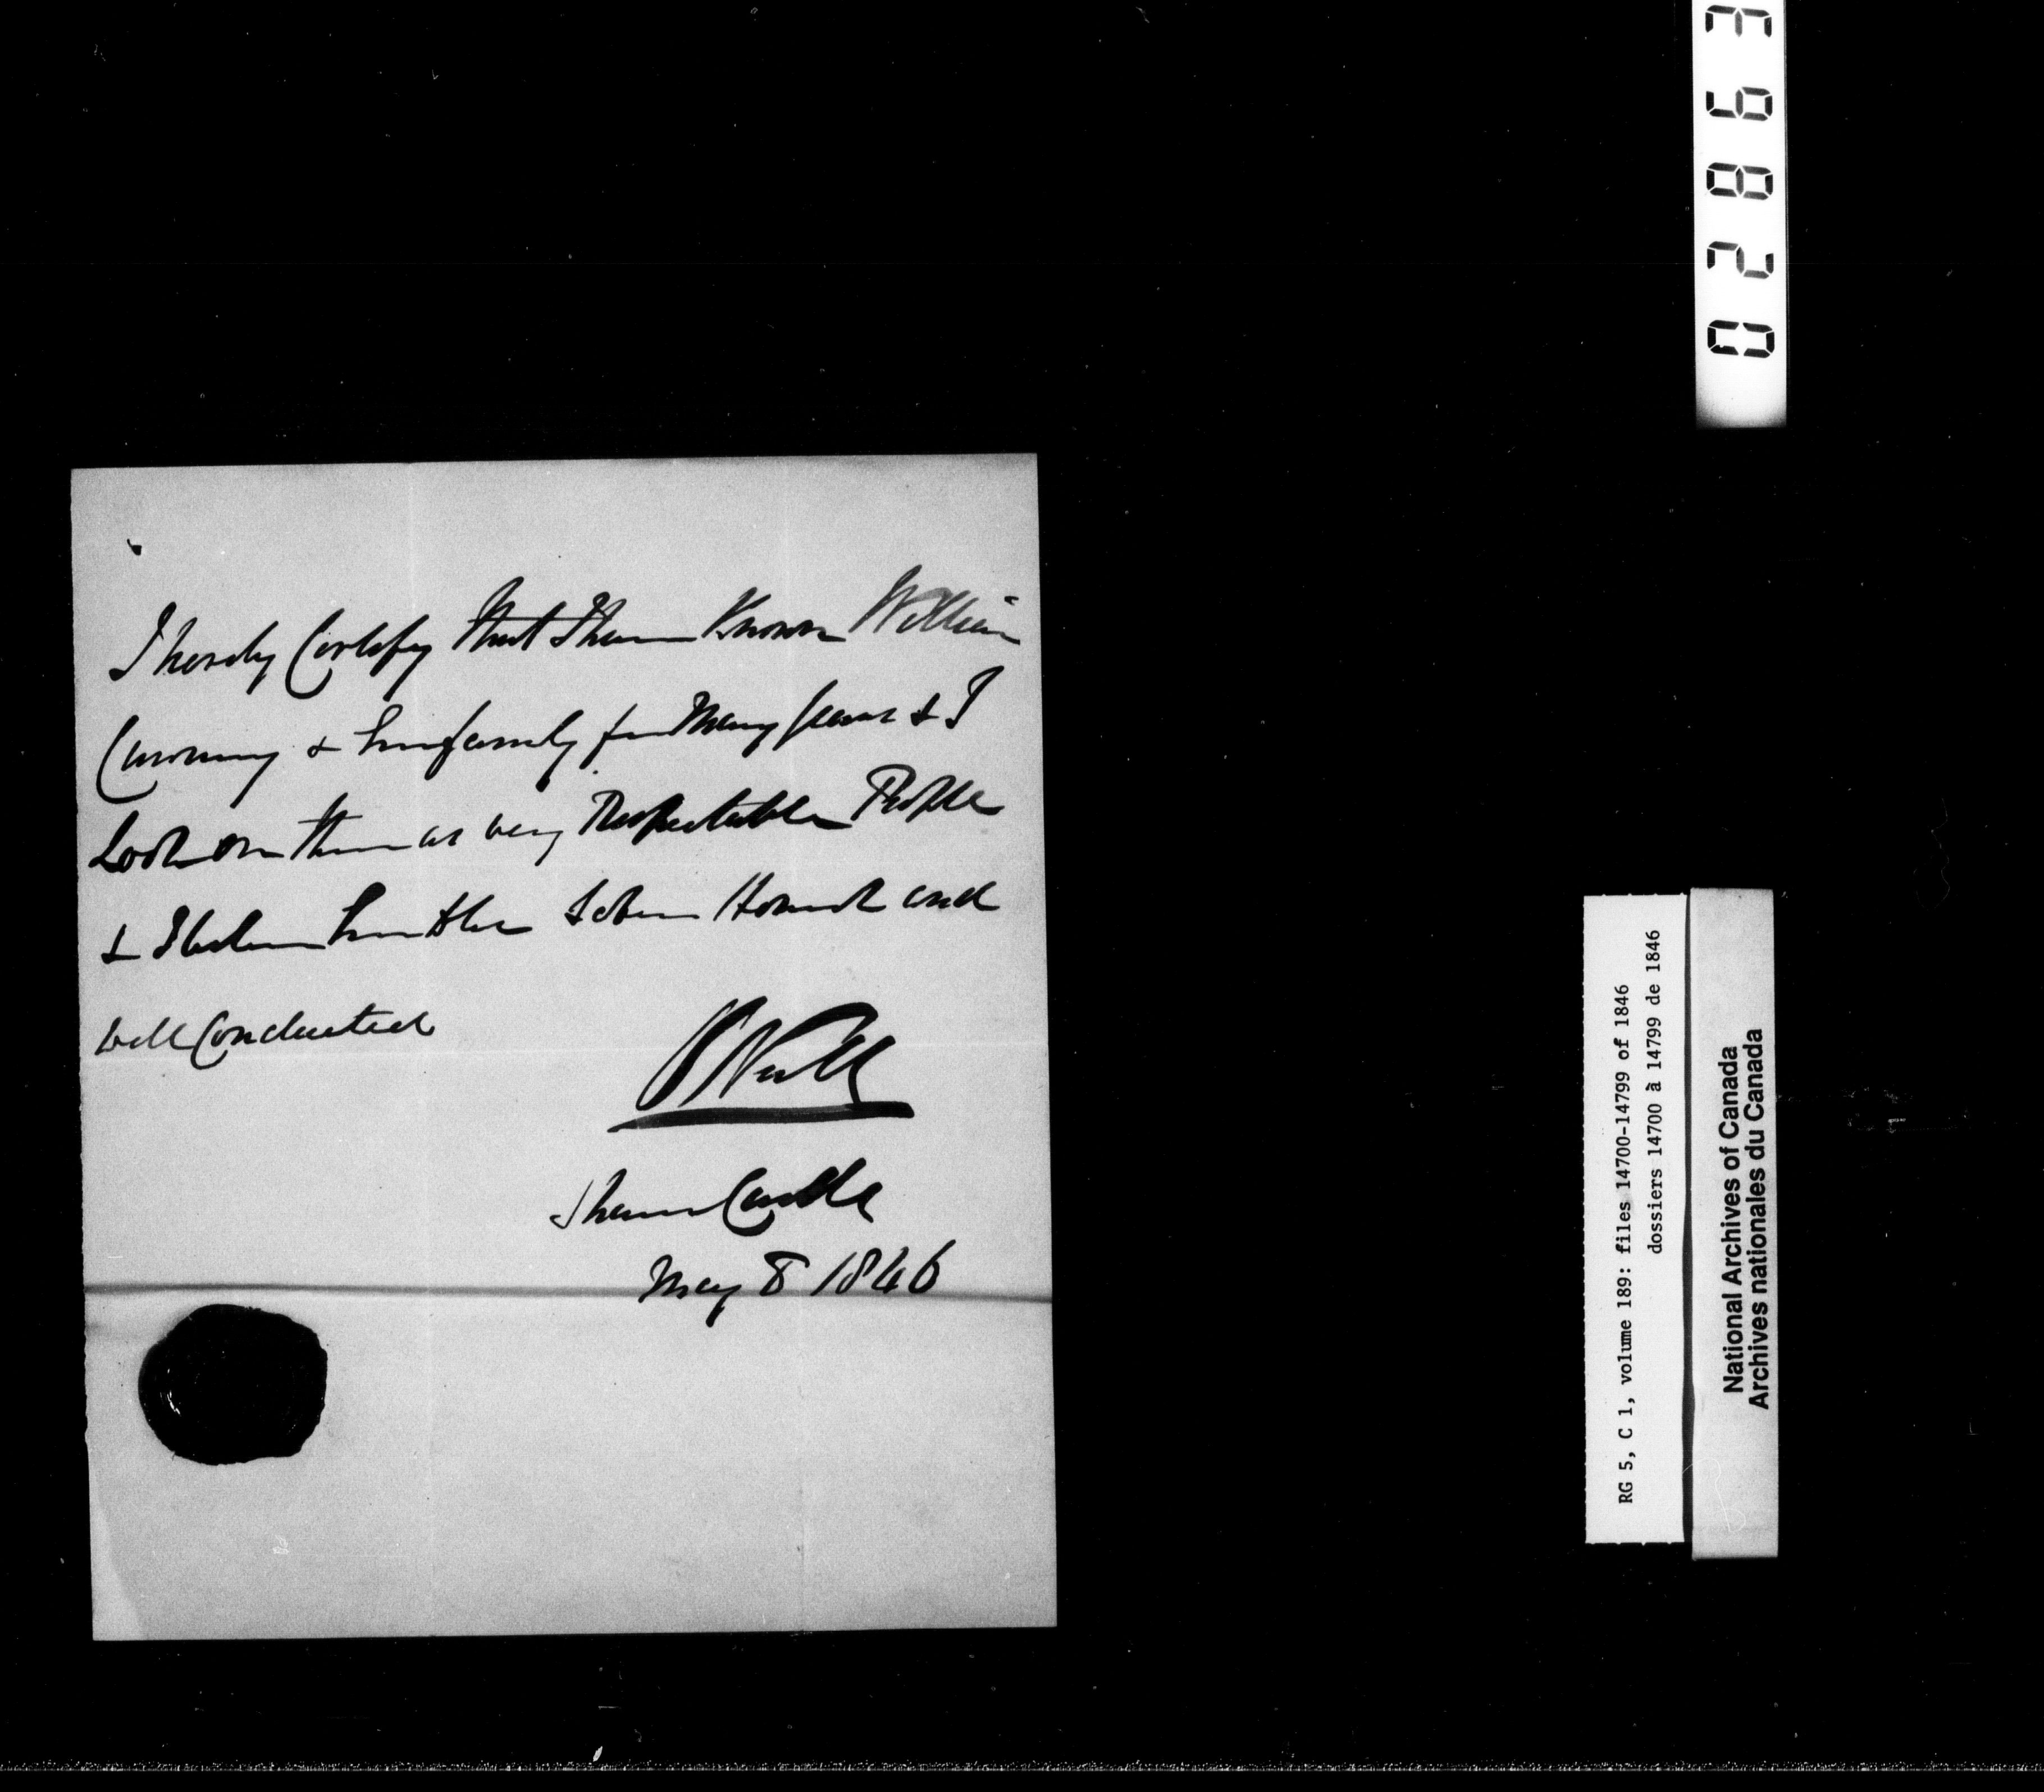 I hereby Certify that I have Known William
& his family for Many years & I
Look on them as very Respectable People
& I believe him to be Sober Honest and
well Conducted
O'Neill
Shanes Castle
May 8 1846
02863
RG 5, C 1, volume 189: files 14700-14799 of 1846
dossiers 14700 à 14799 de 1846
National Archives of Canada
Archives nationales du Canada